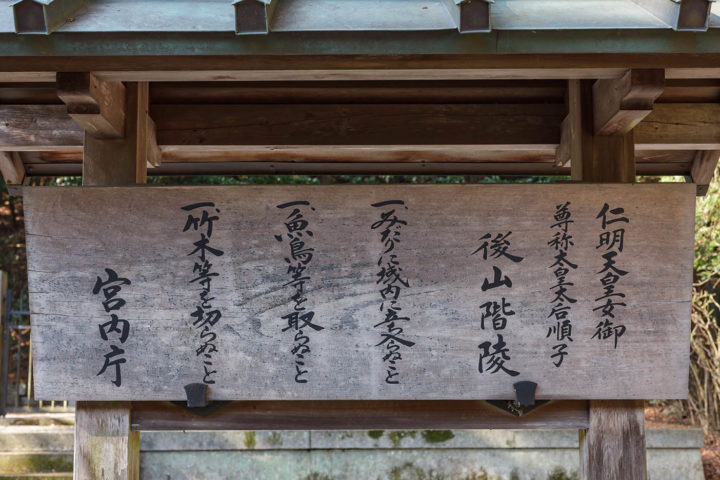 仁明天皇女御
尊称太皇太后順子
後山階陵
一、みだりに域内に立入らぬこと
一、魚鳥等を取らぬこと
一、竹木等を切らぬこと
宮内庁